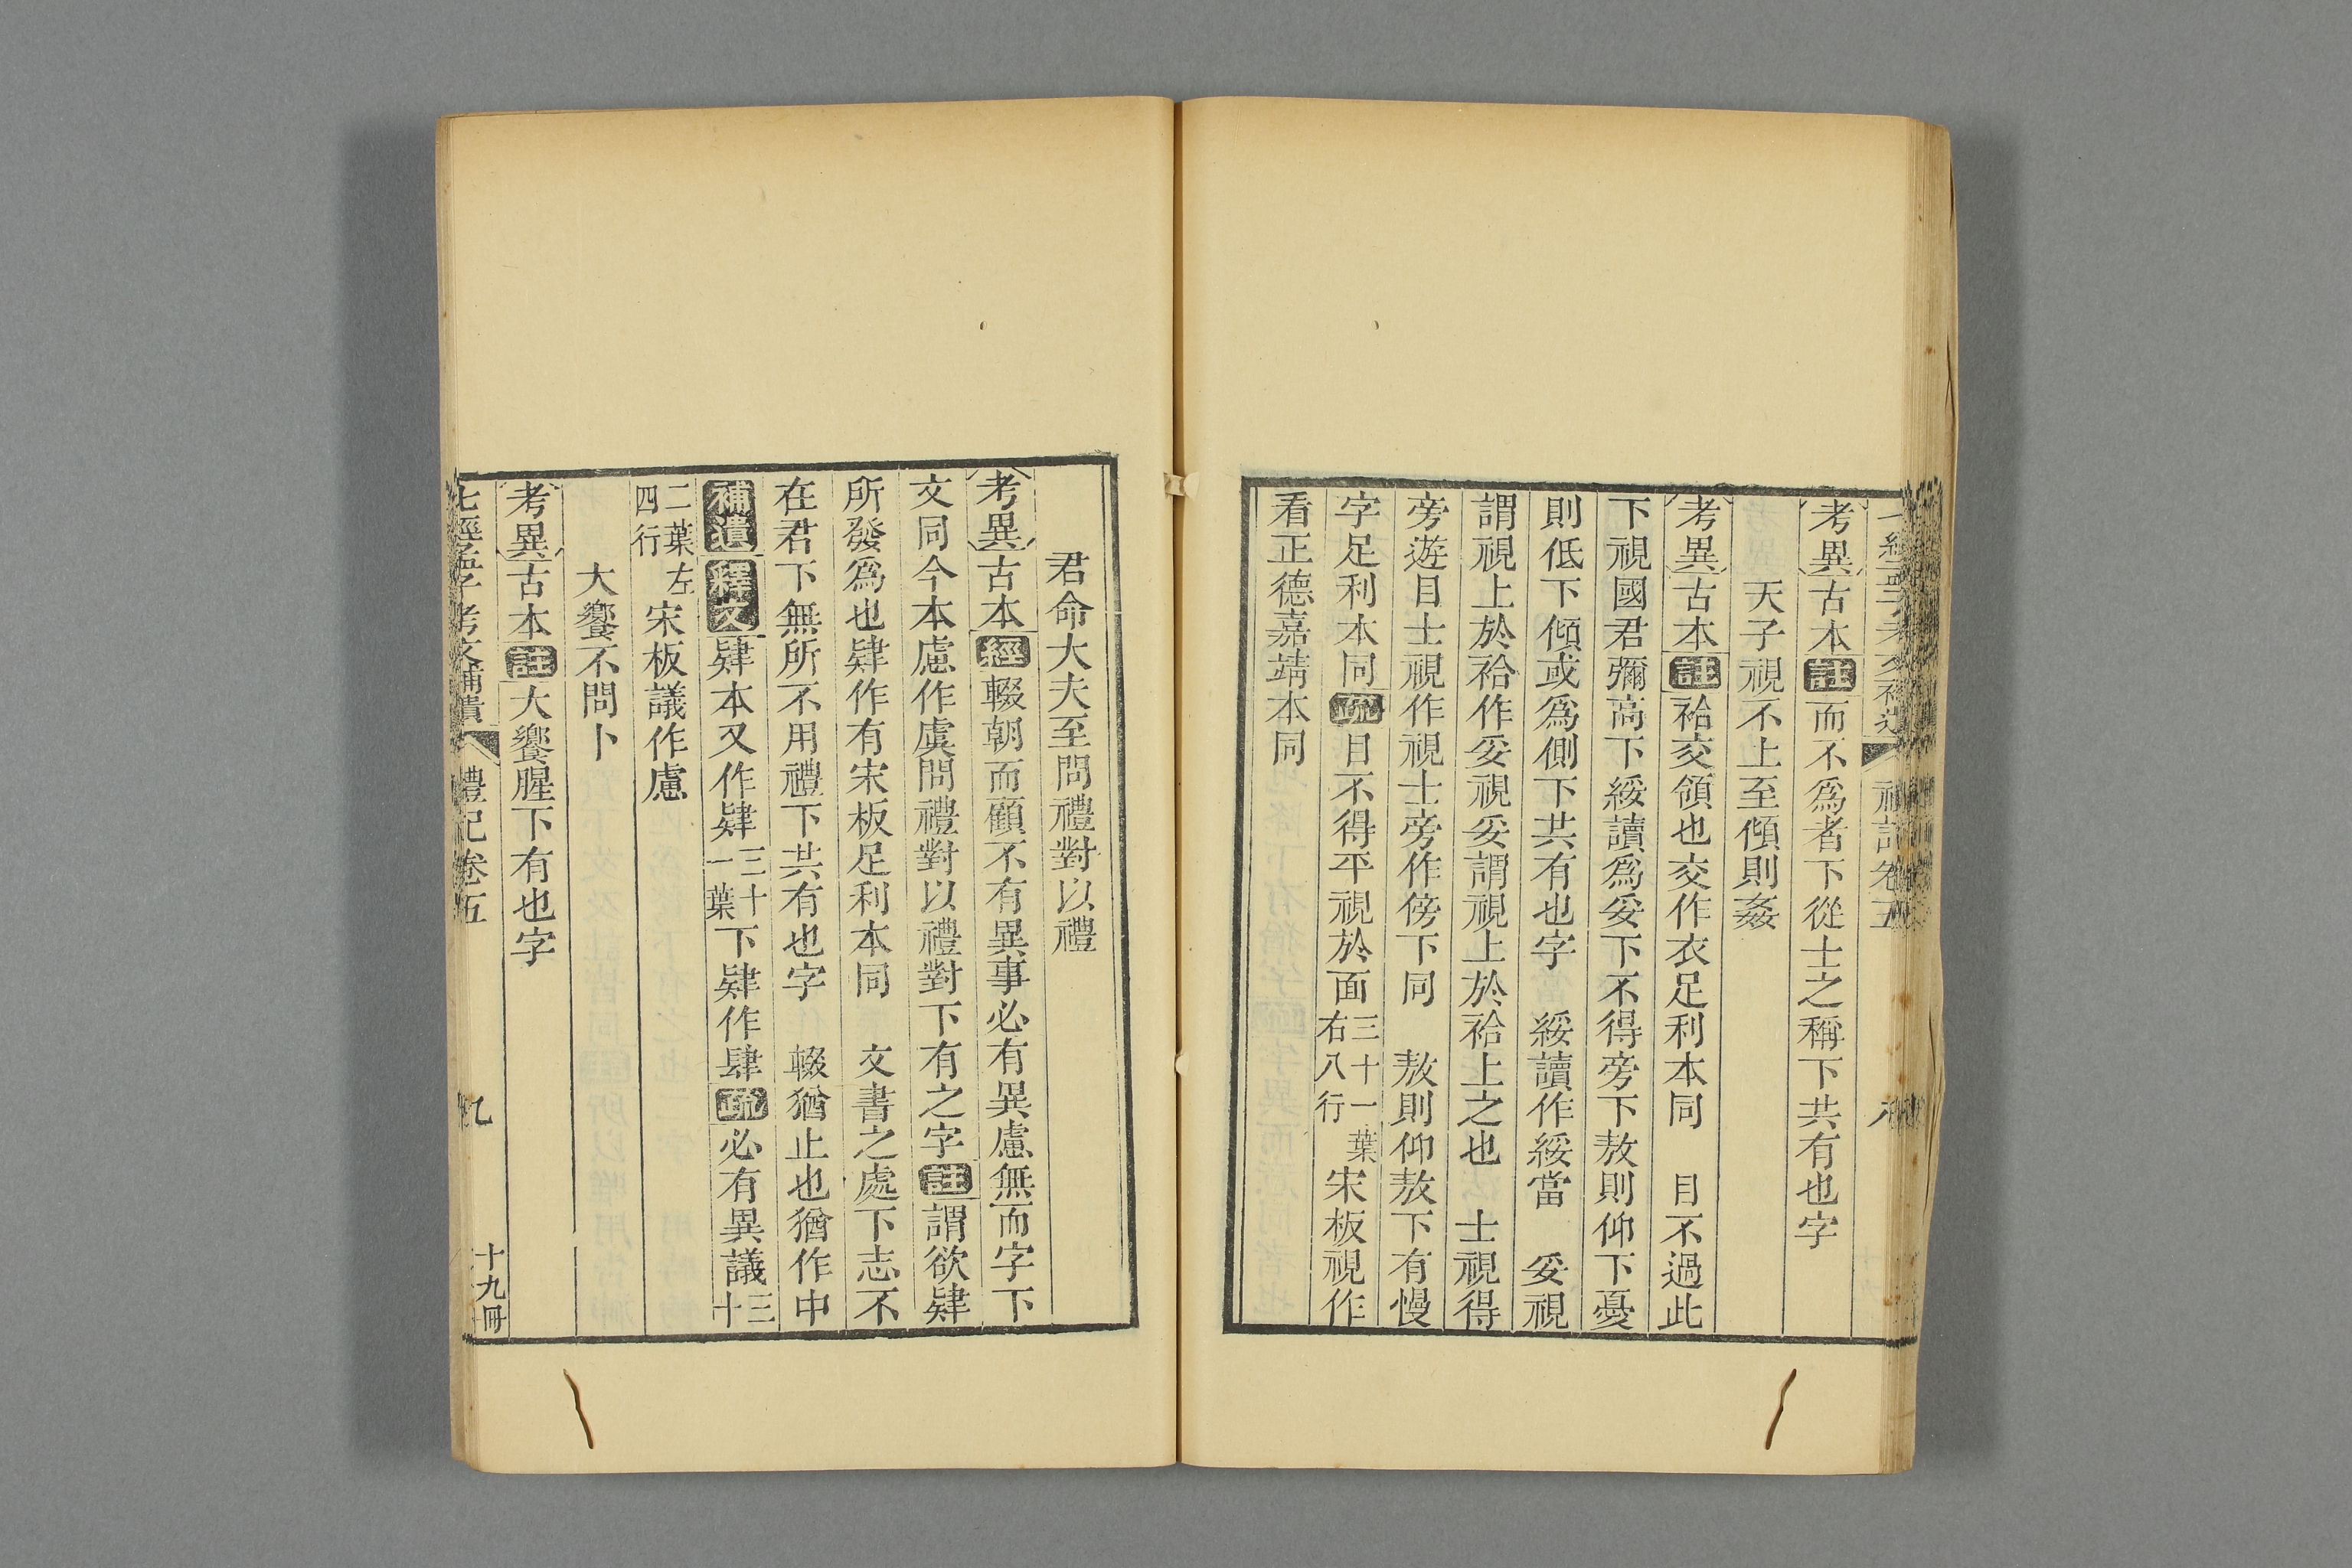 考異古本註而不爲者下從士之稱下共有也字
天子視不上至傾則姦
考異古本註袷交領也交作衣足利本同　目不過此
下視國君彌高下綏讀爲妥下不得旁下敖則仰下憂
則低下傾或爲側下共有也字　綏讀作綏當　妥視
謂視上於袷作妥視妥謂視上於袷上之也　士視得
旁遊目士視作視士旁作傍下同　敖則仰敖下有慢
字足利本同疏日不得平視於面三十一葉右八行宋板視作
看正德嘉靖本同
君命大夫至問禮對以禮
考異古本經輟朝而顧不有異事必有異慮無而字下
文同今本慮作虞問禮對以禮對下有之字註謂欲肄
所發爲也肄作有宋板足利本同　文書之處下志不
在君下無所不用禮下共有也字　輟猶止也猶作中
補遺釋文肄本又作肄三十一葉下肄作肆疏必有異議三十
二葉左四行宋板議作慮
大饗不問卜
考異古本註大饗腥下有也字
七經孟子考文補遺　禮記卷五　九　十九冊